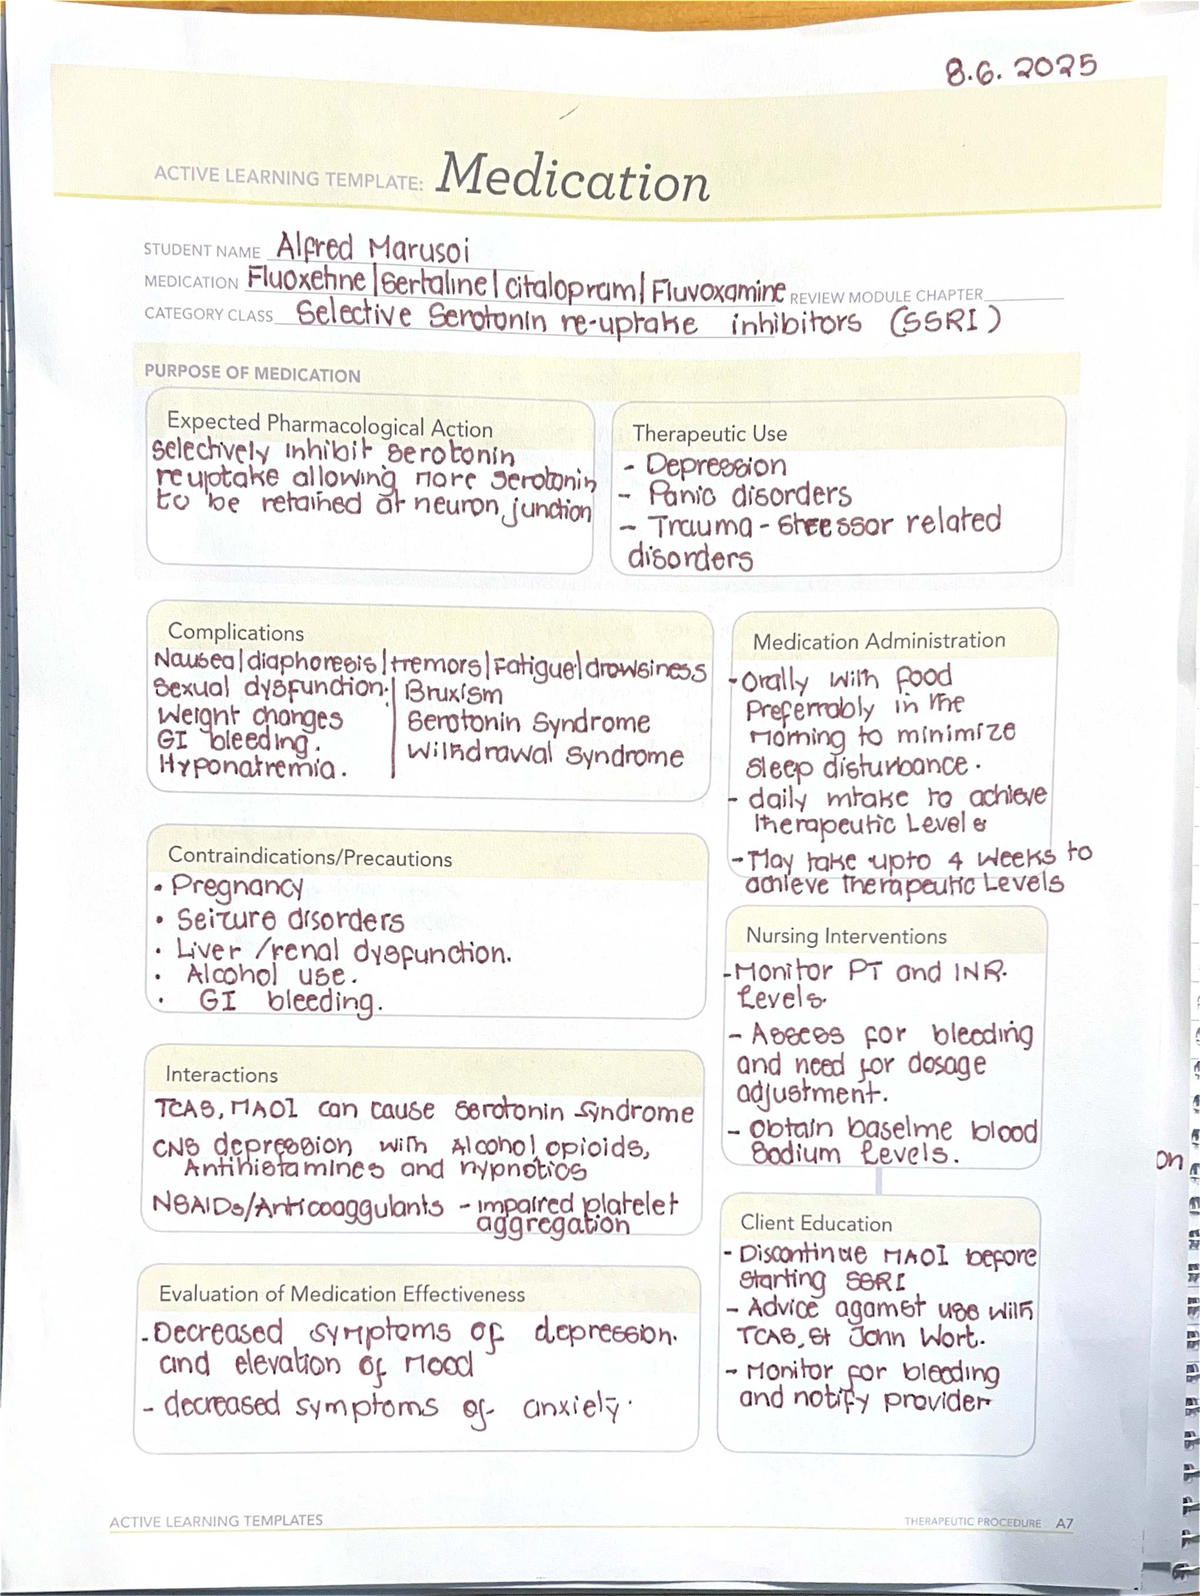 8.6.2025
ACTIVE LEARNING TEMPLATE: Medication
STUDENT NAME Alfred Marusoi
MEDICATION Fluoxetine|Sertaline|citalopram|Fluvoxamine REVIEW MODULE CHAPTER
CATEGORY CLASS Selective Serotonin re-uptake inhibitors (SSRI)
PURPOSE OF MEDICATION
Expected Pharmacological Action
selectively inhibit serotonin
reuptake allowing more serotonin
to be retained at neuron junction
Therapeutic Use
- Depression
- Panic disorders
- Trauma-stressor related
disorders
Complications
Nausea|diaphoresis|tremors|Fatigue|drowsiness
Sexual dysfunction.| Bruxism
Weight changes | Serotonin Syndrome
GI bleeding. | Withdrawal Syndrome
Hyponatremia.
Medication Administration
-Orally with food
Preferrably in the
Morning to minimize
sleep disturbance.
- daily intake to achieve
therapeutic Levels
-May take upto 4 Weeks to
achieve therapeutic Levels
Contraindications/Precautions
• Pregnancy
• Seizure disorders
• Liver /renal dysfunction.
• Alcohol use.
• GI bleeding.
Nursing Interventions
-Monitor PT and INR.
Levels.
- Assess for bleeding
and need for dosage
adjustment.
- Obtain baseline blood
Sodium Levels.
Interactions
TCAS, MAOI can cause serotonin syndrome
CNS depression with Alcohol, opioids,
Antihistamines and hypnotics
NSAIDs/Anticoaggulants - impaired platelet
aggregation
on
Client Education
- Discontinue MAOI before
starting SSRI
- Advice against use with
TCAS, St John Wort.
- Monitor for bleeding
and notify provider
Evaluation of Medication Effectiveness
-Decreased symptoms of depression.
and elevation of Mood
- decreased symptoms of anxiety.
ACTIVE LEARNING TEMPLATES
THERAPEUTIC PROCEDURE A7